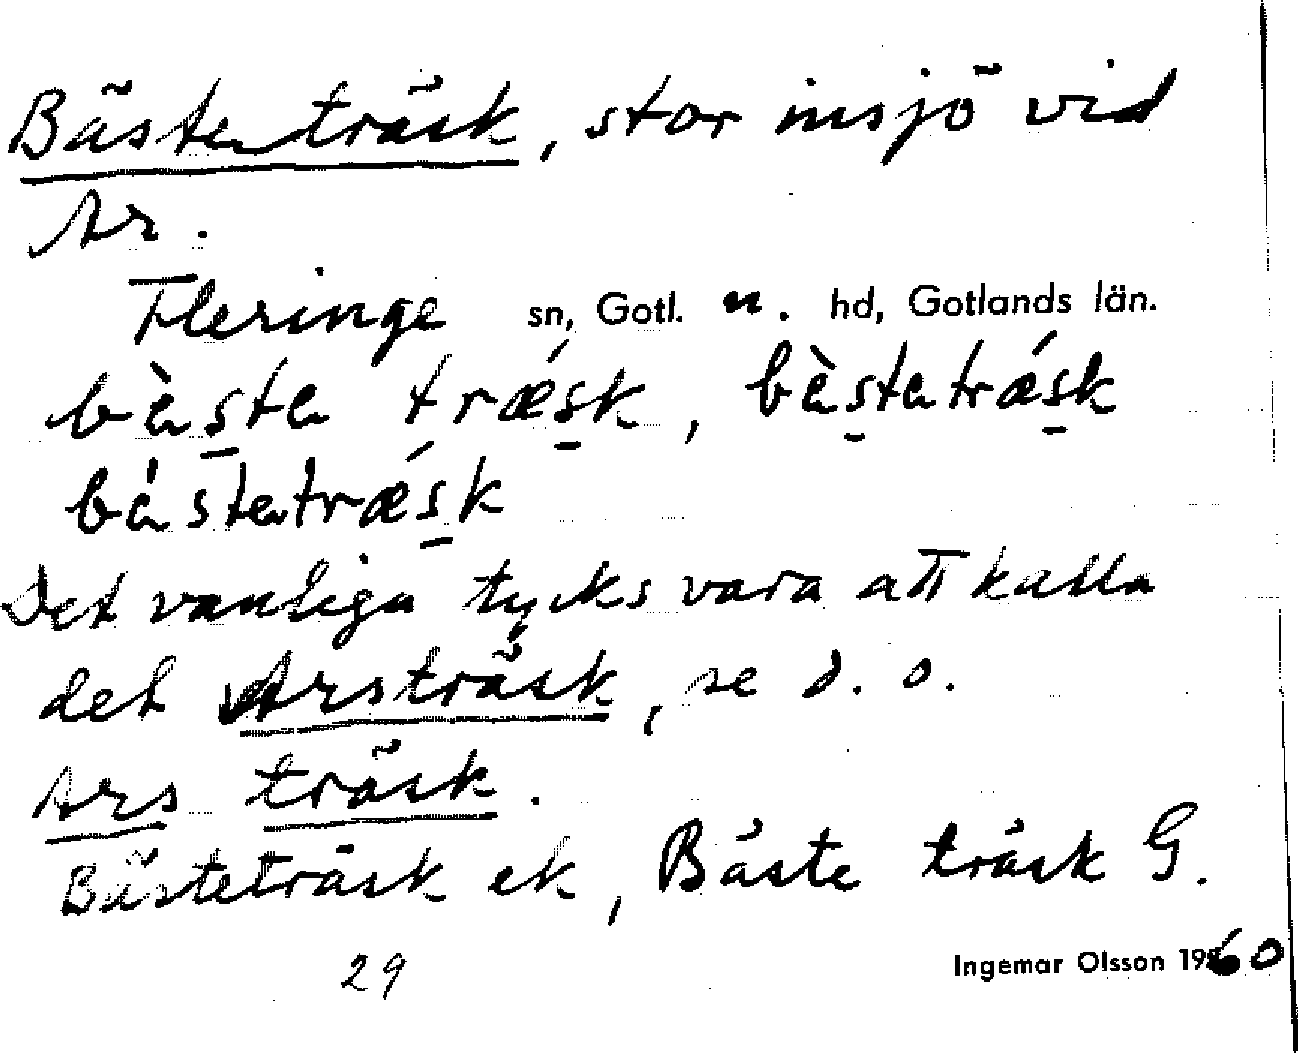 Bästeträsk, stor insjö vid
Ar.
Fleringe sn, Gotl. n. hd, Gotlands län.
bàsta træ´sk, bàstatræ´sk
bástatræ´sk
Det vanliga tycks vara att kalla
det Arsträsk, se d. o.
Ars träsk.
Bästeträsk ek, Bäste träsk G.
29
Ingemar Olsson 1960